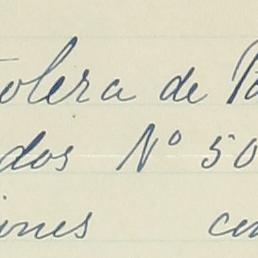 tolera de Pa
dos Nº 50
iones con